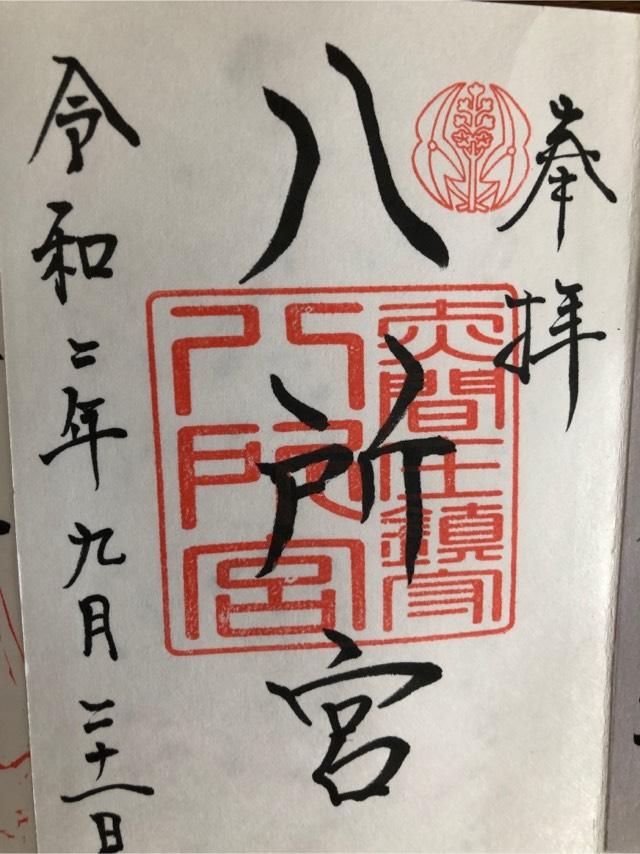 奉拝
八所宮
令和二年九月二十一日
赤間庄鎮守
八所宮